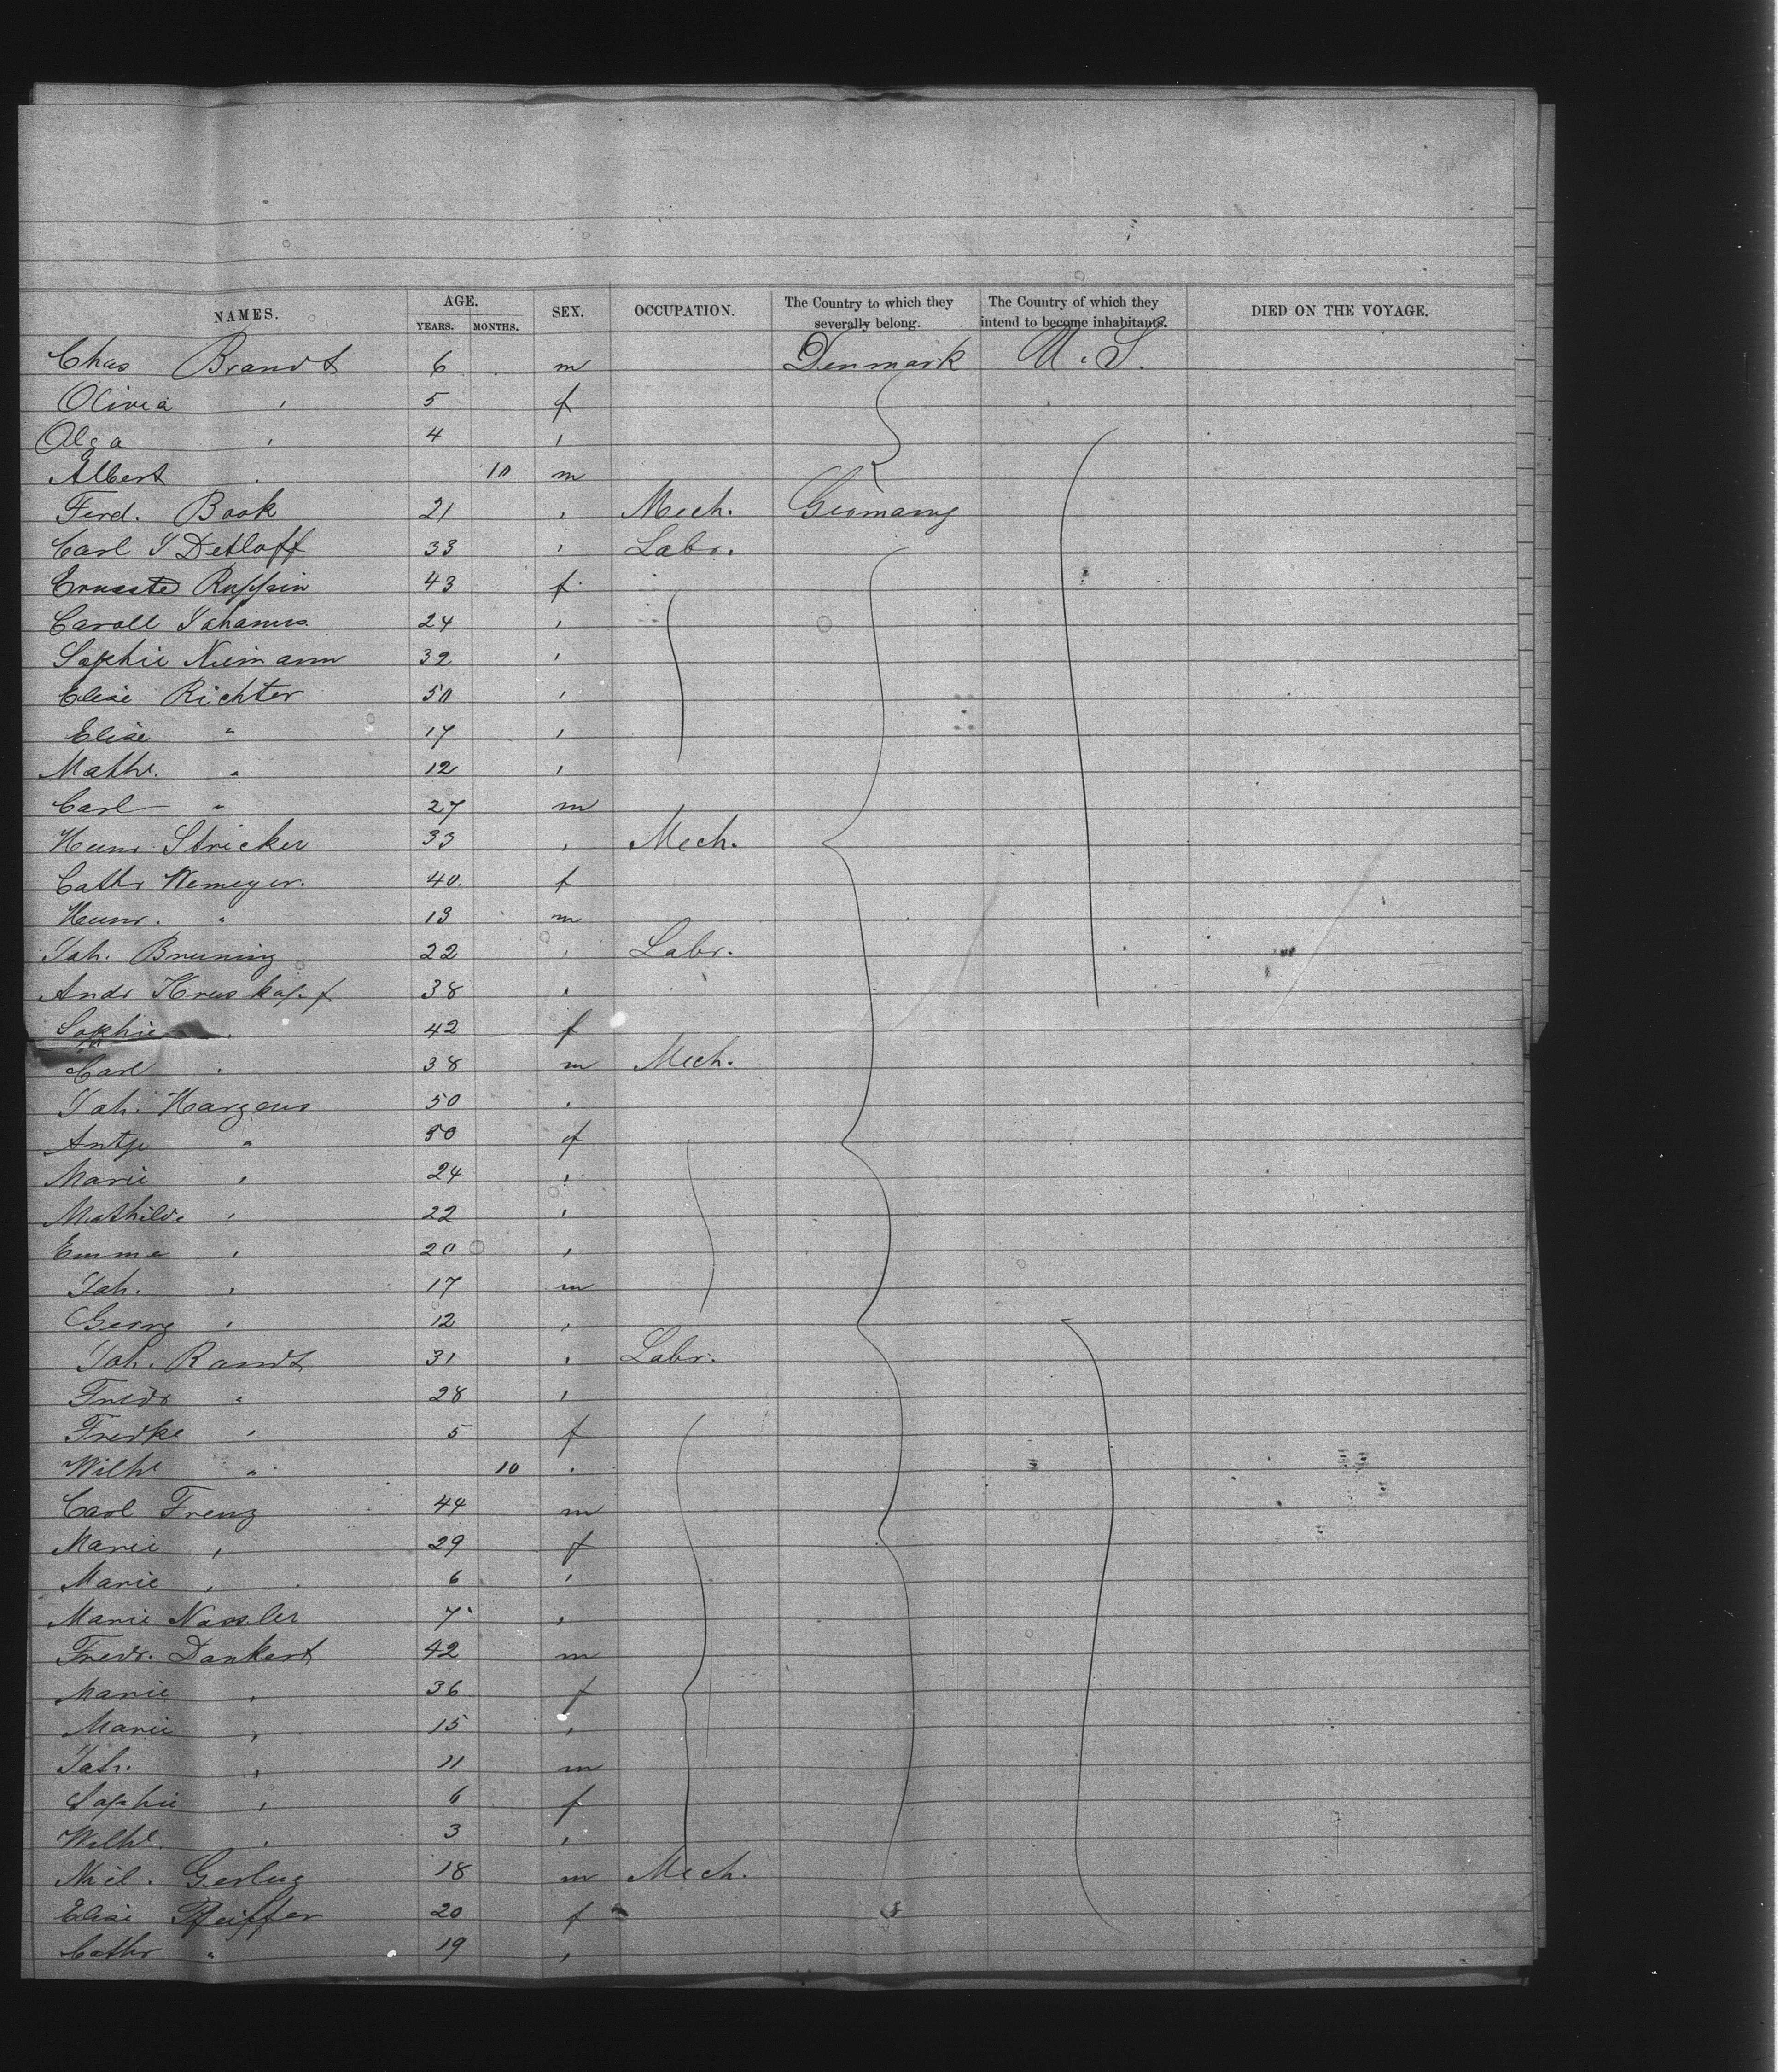 NAMES. AGE. YEARS. MONTHS. SEX. OCCUPATION. The Country to which they severally belong. The Country of which they intend to become inhabitants. DIED ON THE VOYAGE.
Chas Brandt 6 m Denmark U.S.
Olivia " 5 f
Olga " 4 "
Albert " 10 m
Ferd. Book 21 " Mech. Germany
Carl J Detloff 33 " Labr.
Erneste Ruppin 43 f
Caroll Johanns 24 "
Sophie Niemann 32 "
Elise Richter 50 "
Elise " 17 "
Mathe. " 12 "
Carl " 27 m
Heinr Stricker 33 " Mech.
Cathr Wemeyer. 40 f
Heinr. " 13 m
Joh. Bruning 22 " Labr.
Andr Kruskopf 38 "
Sophie " 42 f
Carl " 38 m Mech.
Joh. Hargens 50 "
Antje " 50 f
Marie " 24 "
Mathilde " 22 "
Emma " 20 "
Joh. " 17 m
Georg " 12 "
Joh. Randt 31 " Labr.
Friedr " 28 "
Fredke " 5 f
Wilhe " 10 "
Carl Frenz 44 m
Marie " 29 f
Marie " 6 "
Marie Nassler 7 "
Friedr. Dankert 42 m
Marie " 36 f
Marie " 15 "
Joh. " 11 m
Sophie " 6 f
Wilhe. " 3 "
Nicl. 18 m Mech.
Elise Pfeiffer 20 f
Cathr " 19 "